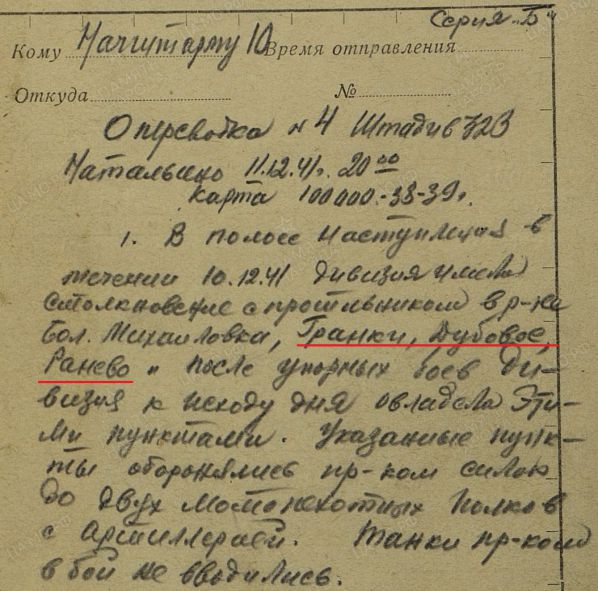 Серия „Б“
Кому Начштарму 10 Время отправления
Откуда №
Оперсводка № 4 Штадив 323
Натальино 11.12.41г. 20 00
Карта 100000.-38-39г.
1. В полосе наступления в
течении 10.12.41 дивизия имела
столкновение с противником в р-не
Бол. Михайловка, Гранки, Дубовое,
Ранево и после упорных боев ди-
визия к исходу дня овладела эти-
ми пунктами. Указанные пунк-
ты оборонялись пр-ком силою
до двух мотопехотных полков
с артиллерией. Танки пр-ком
в бой не вводились.